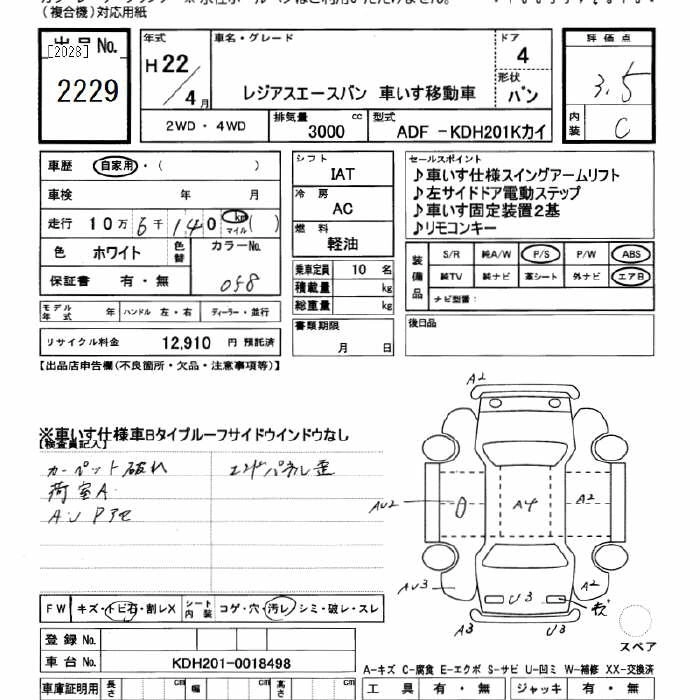 （複合機）対応用紙
出品No.
[2028]
2229
年式
H 22 / 4 月
車名・グレード
レジアスエースバン 車いす移動車
ドア
4
形状
バン
評価点
3.5
内装
C
2WD・4WD
排気量 3000 cc
型式 ADF -KDH201Kカイ
車歴 自家用・( )
車検 年 月
走行 10万 6千 140 km マイル ( )
色 ホワイト 色替 カラーNo.
058
保証書 有・無
モデル年式 年 ハンドル 左・右 ディーラー・並行
リサイクル料金 12,910 円 預託済
シフト
IAT
冷房
AC
燃料
軽油
乗車定員 10 名
積載量 kg
総重量 kg
書類期限
月 日
セールスポイント
♪車いす仕様スイングアームリフト
♪左サイドドア電動ステップ
♪車いす固定装置2基
♪リモコンキー
装備品
S/R 純A/W P/S P/W ABS
純TV 純ナビ 革シート 外ナビ エアB
ナビ型番：
後日品
【出品店申告欄(不良箇所・欠品・注意事項等)】
※車いす仕様車Bタイプルーフサイドウインドウなし
【検査員記入】
カーペット破れ エンドパネル歪
荷室A
AU Pアセ
A2
AU2
A4
A2
AU3
U3
A2
A3
U3
スペア
FW キズ・トビ石・割レX シート内装 コゲ・穴・汚レ・シミ・破レ・スレ
登録No.
車台No. KDH201-0018498
車庫証明用 長さ cm 幅 cm 高さ cm
A-キズ C-腐食 E-エクボ S-サビ U-凹ミ W-補修 XX-交換済
工具 有・無 ジャッキ 有・無